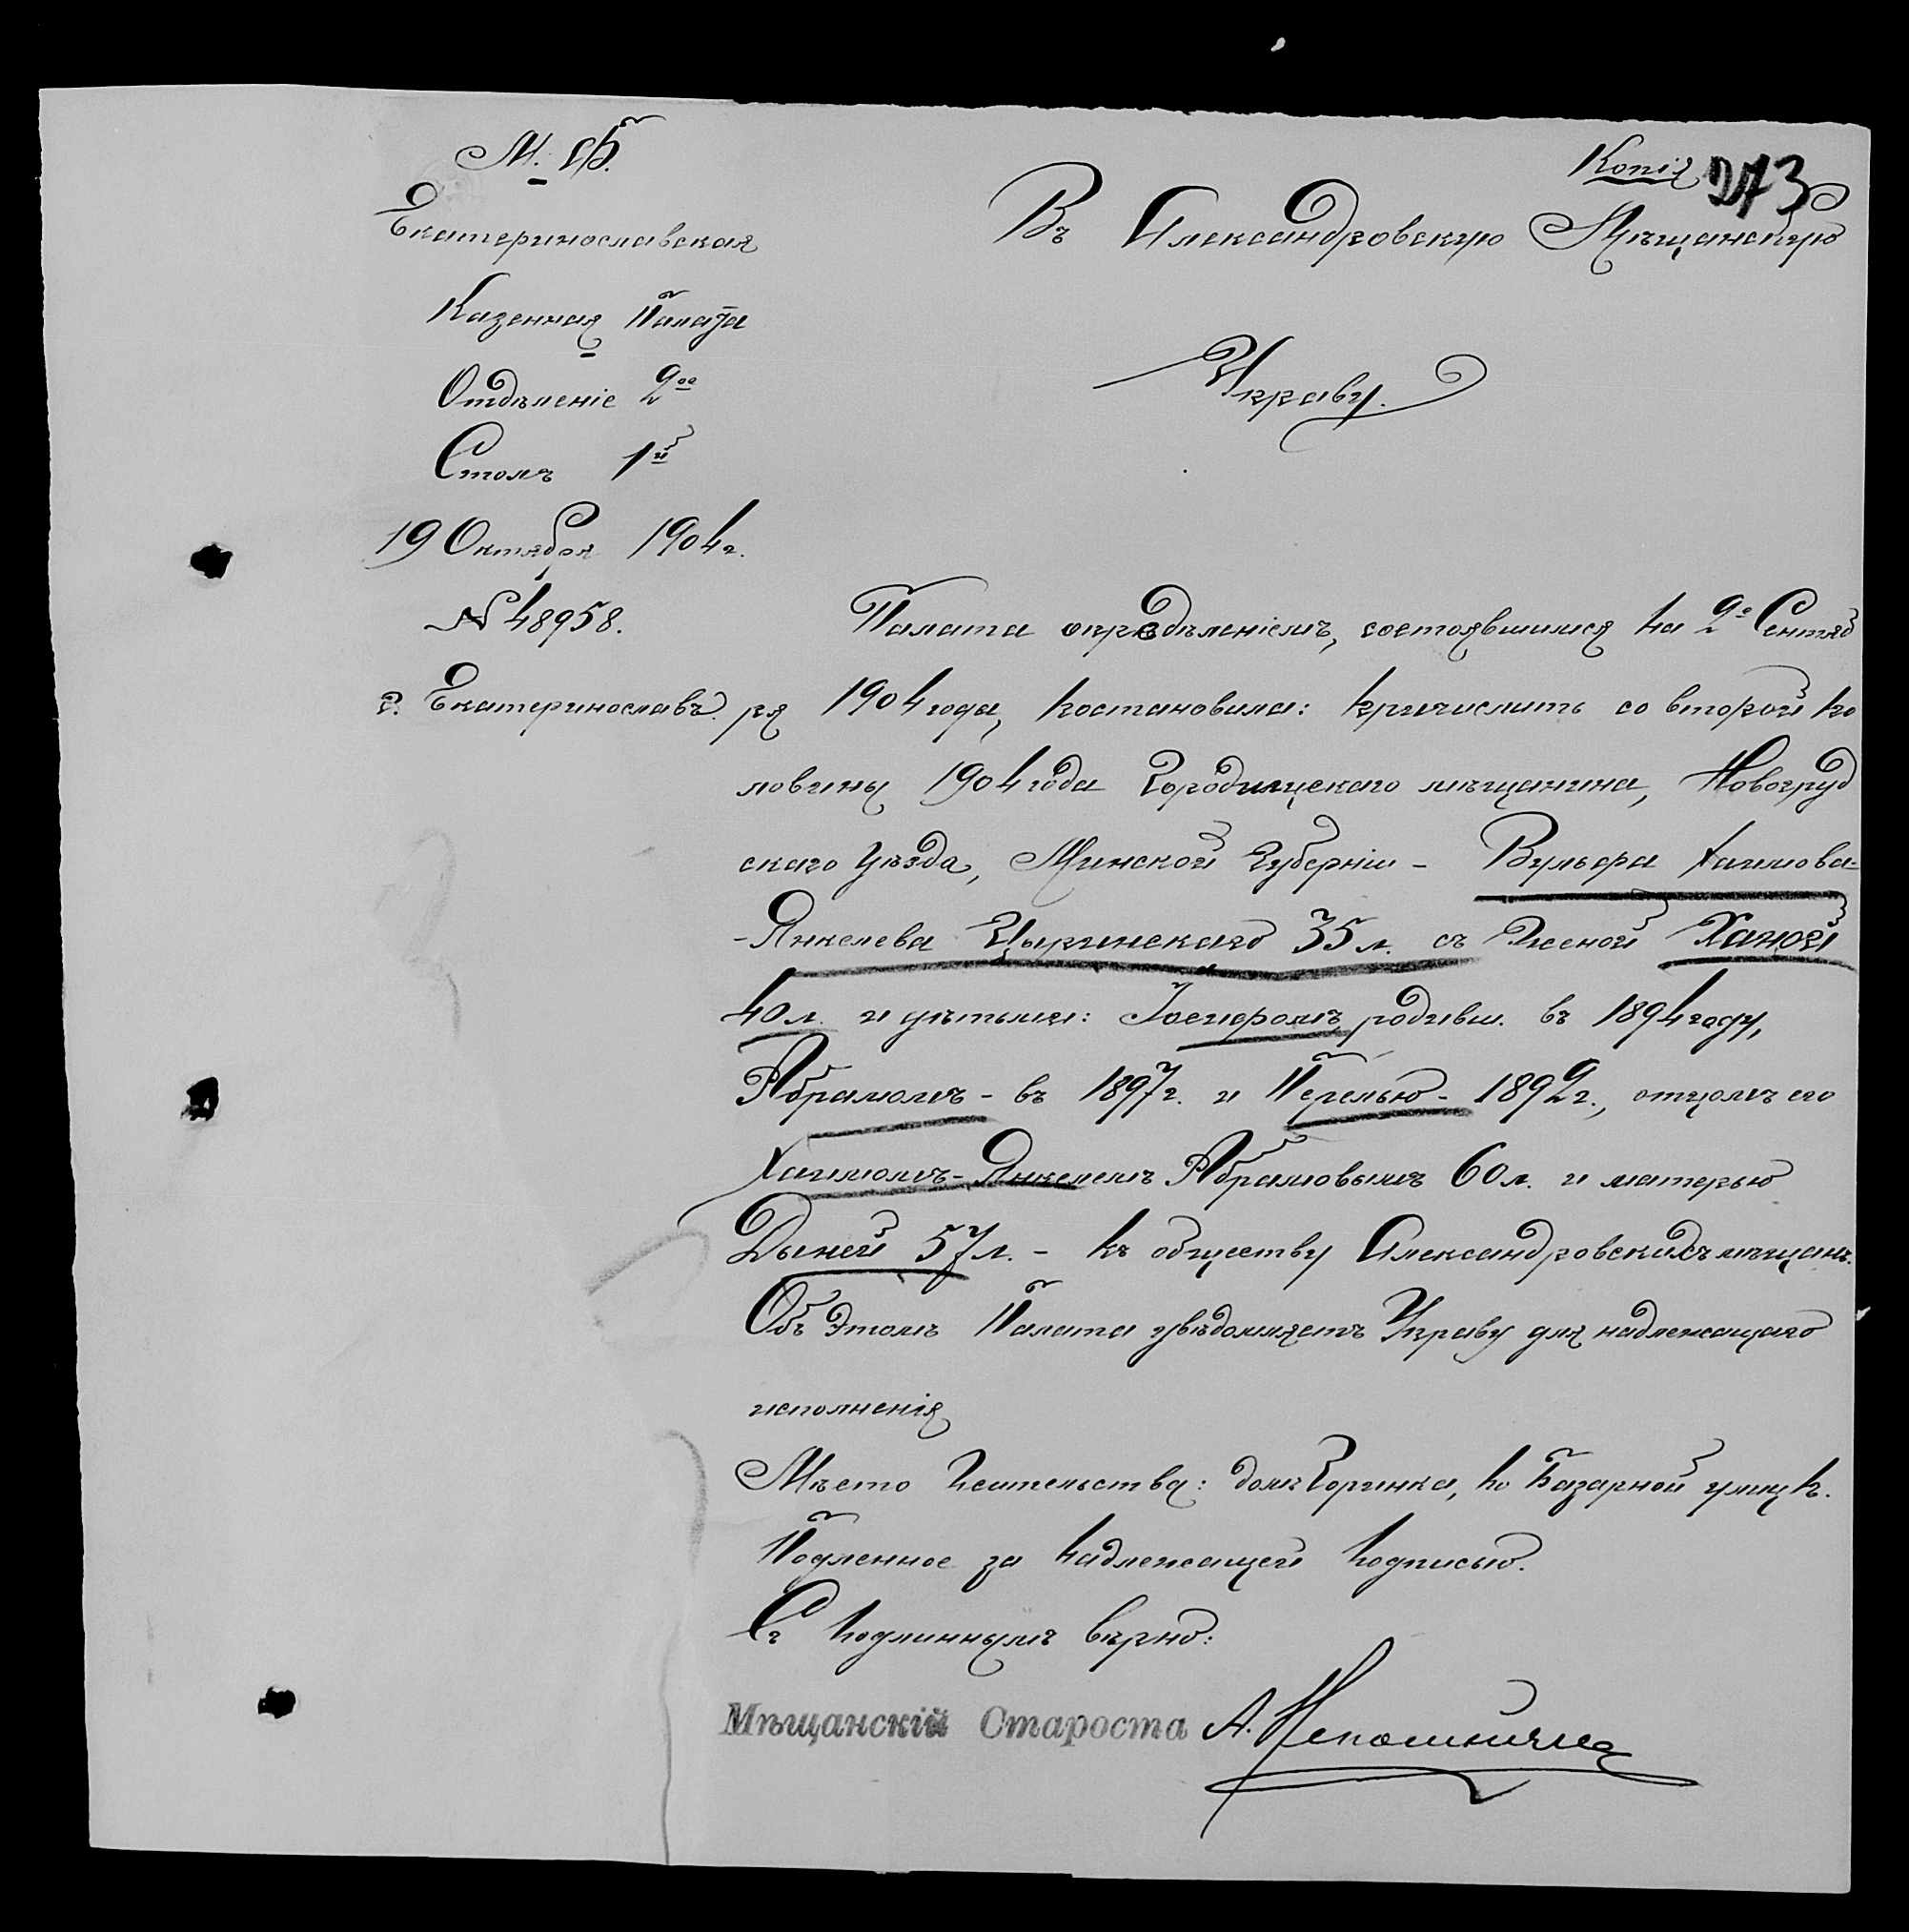 М. Ф.
Копія 273
Екатеринославская
Казенная Палата
Отдѣленіе 2ое
Столъ 1й
19 Октября 1904 г.
№ 48958.
г. Екатеринославъ.
Въ Александровскую Мѣщанскую
Управу.
Палата опредѣленіемъ, состоявшимся на 2е Сентяб
ря 1904 года, постановила: причислить со второй по
ловины 1904 года Городищскаго мѣщанина, Новогруд
скаго уѣзда, Минской Губерніи - Вульфа Хаимова-
-Янкелева Цыринскаго 35 л. съ женой Ханой
40 л. и дѣтьми: Іосифомъ родивш. въ 1894 году,
Абрамомъ - въ 1897 г. и Перелью - 1892 г., отцомъ его
Хаимомъ-Янкелемъ Абрамовымъ 60 л. и матерью
Дыней 57 л. - къ обществу Александровскихъ мѣщанъ.
Объ этомъ Палата увѣдомляетъ Управу для надлежащаго
исполненія
Мѣсто жительства: домъ Горинка, по Базарной улицѣ.
Подленное за надлежащей подписью.
Съ подлиннымъ вѣрно:
Мѣщанскій Староста А.